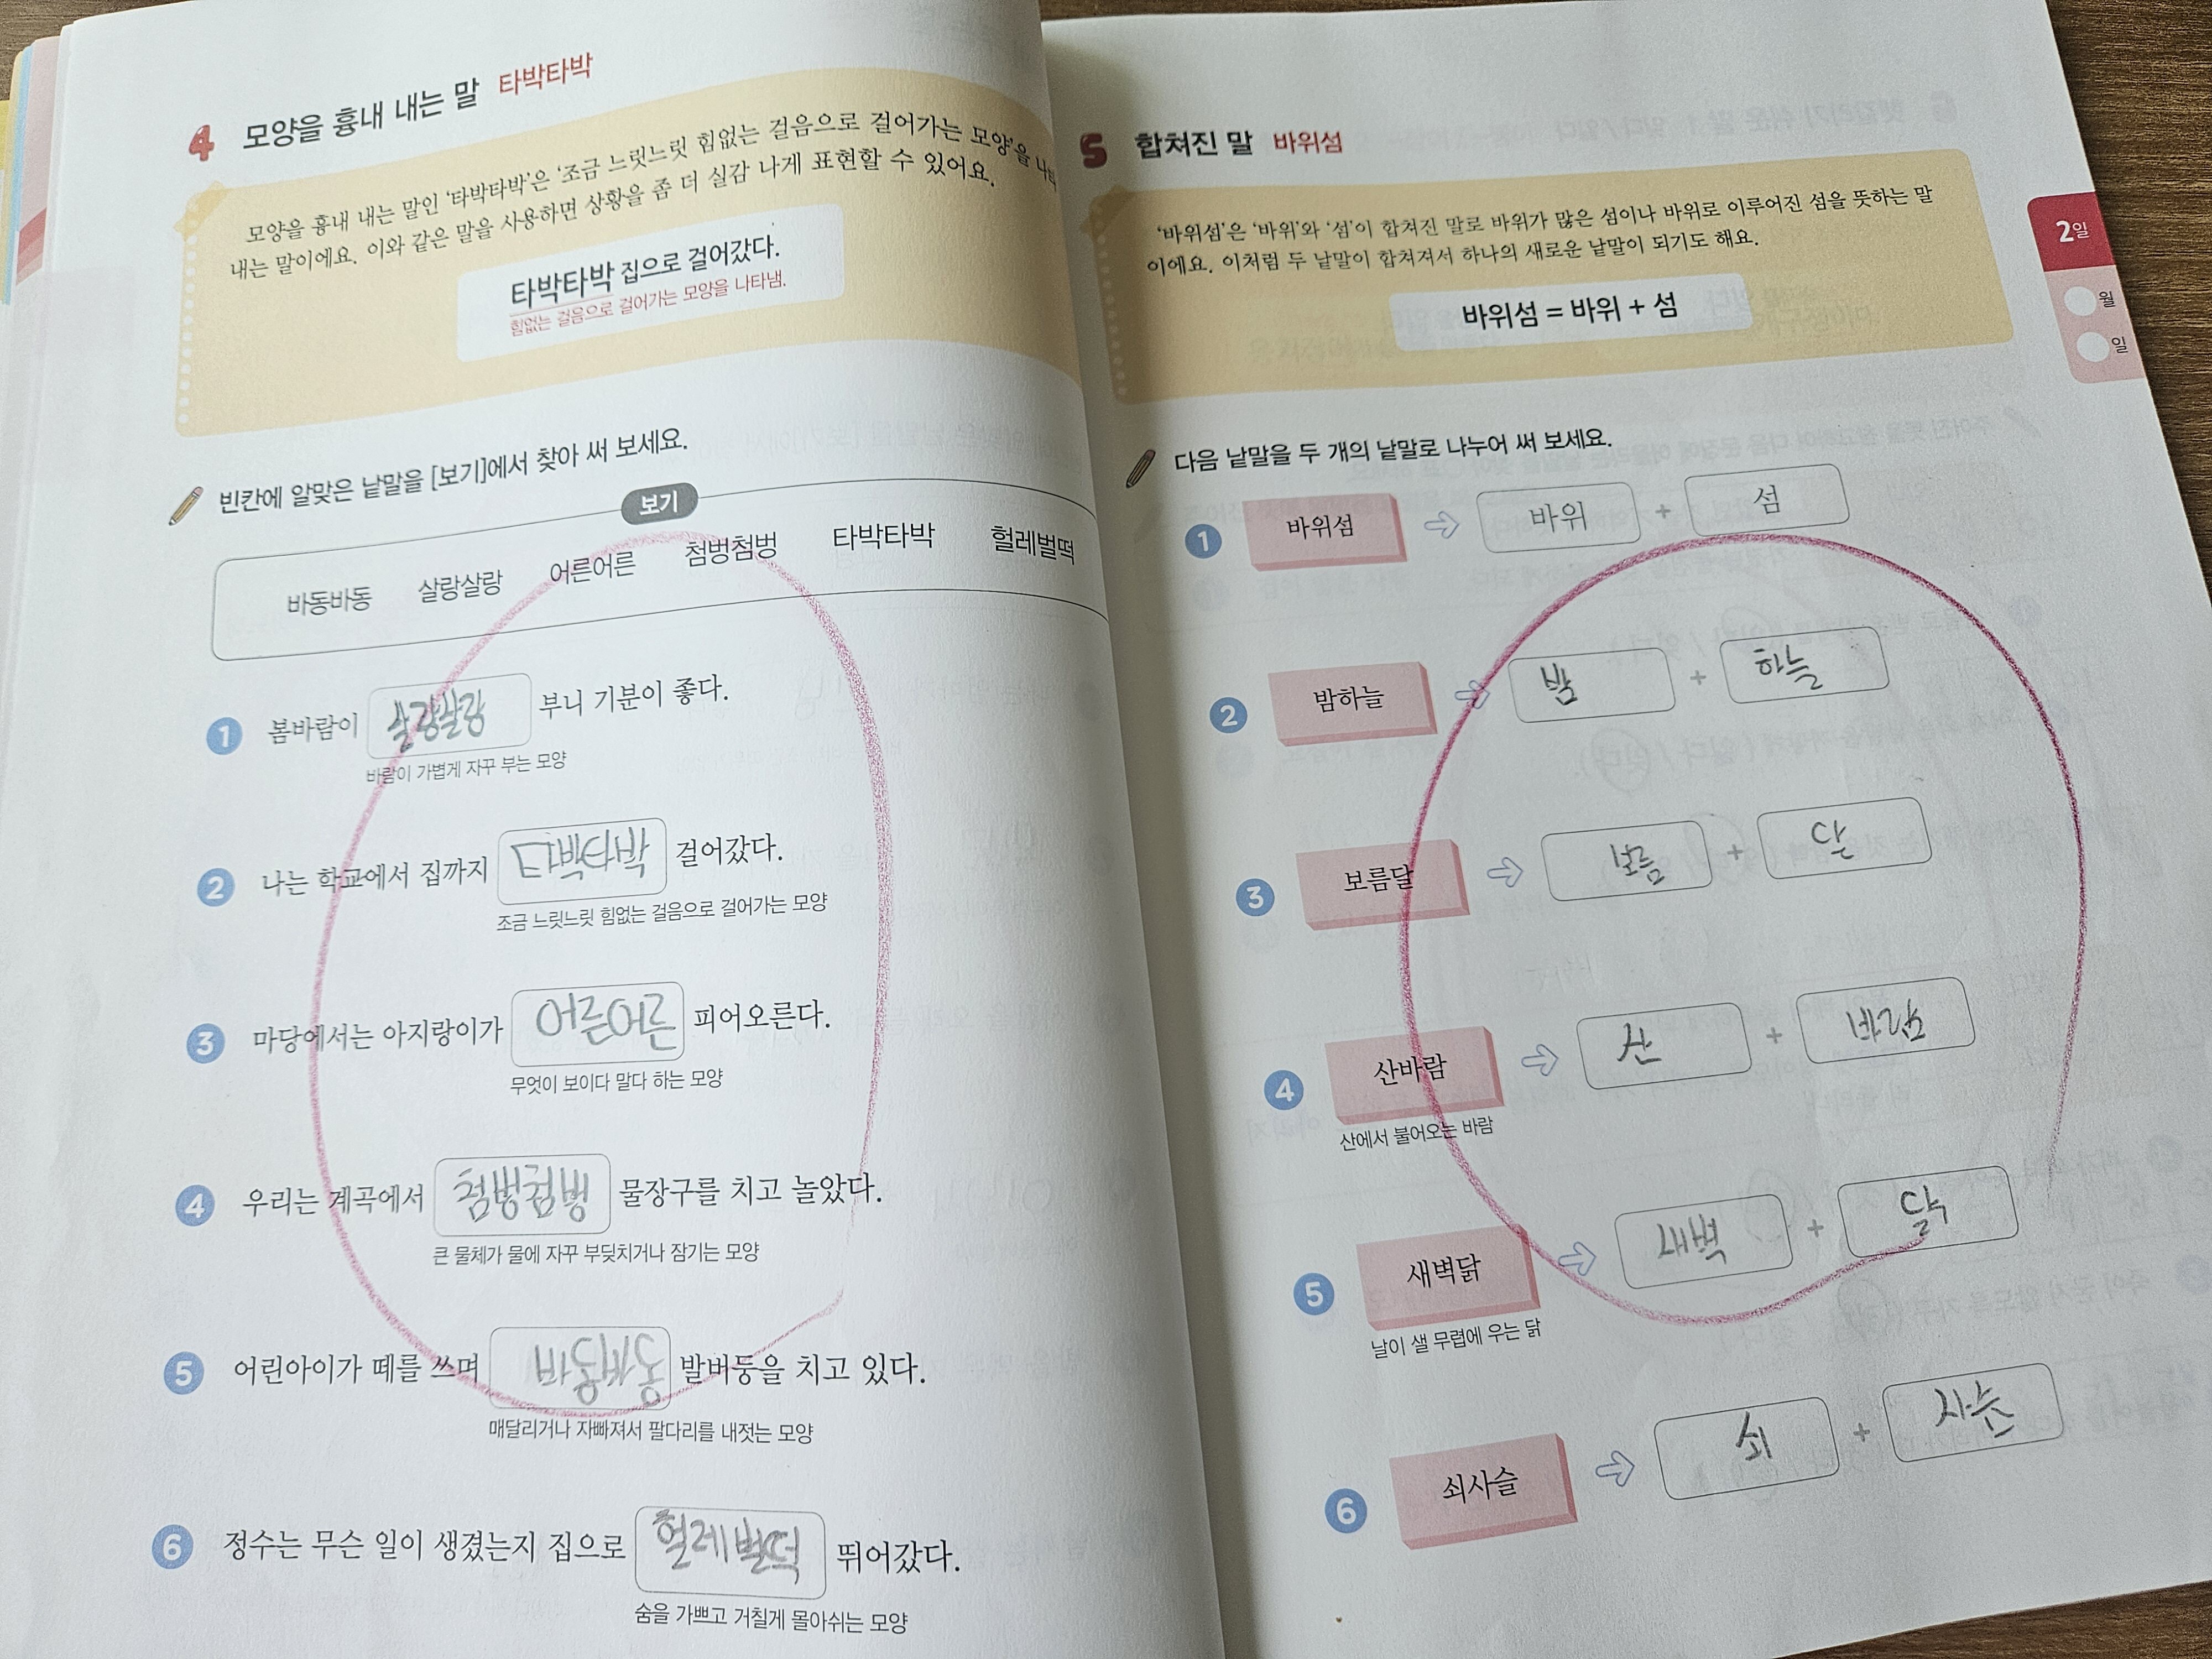 4 모양을 흉내 내는 말 타박타박
모양을 흉내 내는 말인 '타박타박'은 '조금 느릿느릿 힘없는 걸음으로 걸어가는 모양'을 나타
내는 말이에요. 이와 같은 말을 사용하면 상황을 좀 더 실감 나게 표현할 수 있어요.
타박타박 집으로 걸어갔다.
힘없는 걸음으로 걸어가는 모양을 나타냄.
빈칸에 알맞은 낱말을 [보기]에서 찾아 써 보세요.
보기
바동바동 살랑살랑 어른어른 첨벙첨벙 타박타박 헐레벌떡
1 봄바람이 살랑살랑 부니 기분이 좋다.
바람이 가볍게 자꾸 부는 모양
2 나는 학교에서 집까지 타박타박 걸어갔다.
조금 느릿느릿 힘없는 걸음으로 걸어가는 모양
3 마당에서는 아지랑이가 어른어른 피어오른다.
무엇이 보이다 말다 하는 모양
4 우리는 계곡에서 첨벙첨벙 물장구를 치고 놀았다.
큰 물체가 물에 자꾸 부딪치거나 잠기는 모양
5 어린아이가 떼를 쓰며 바동바동 발버둥을 치고 있다.
매달리거나 자빠져서 팔다리를 내젓는 모양
6 정수는 무슨 일이 생겼는지 집으로 헐레벌떡 뛰어갔다.
숨을 가쁘고 거칠게 몰아쉬는 모양
5 합쳐진 말 바위섬
'바위섬'은 '바위'와 '섬'이 합쳐진 말로 바위가 많은 섬이나 바위로 이루어진 섬을 뜻하는 말
이에요. 이처럼 두 낱말이 합쳐져서 하나의 새로운 낱말이 되기도 해요.
바위섬 = 바위 + 섬
2일
월
일
다음 낱말을 두 개의 낱말로 나누어 써 보세요.
1 바위섬 바위 + 섬
2 밤하늘 밤 + 하늘
3 보름달 보름 + 달
4 산바람 산 + 바람
산에서 불어오는 바람
5 새벽닭 새벽 + 닭
날이 샐 무렵에 우는 닭
6 쇠사슬 쇠 + 사슬